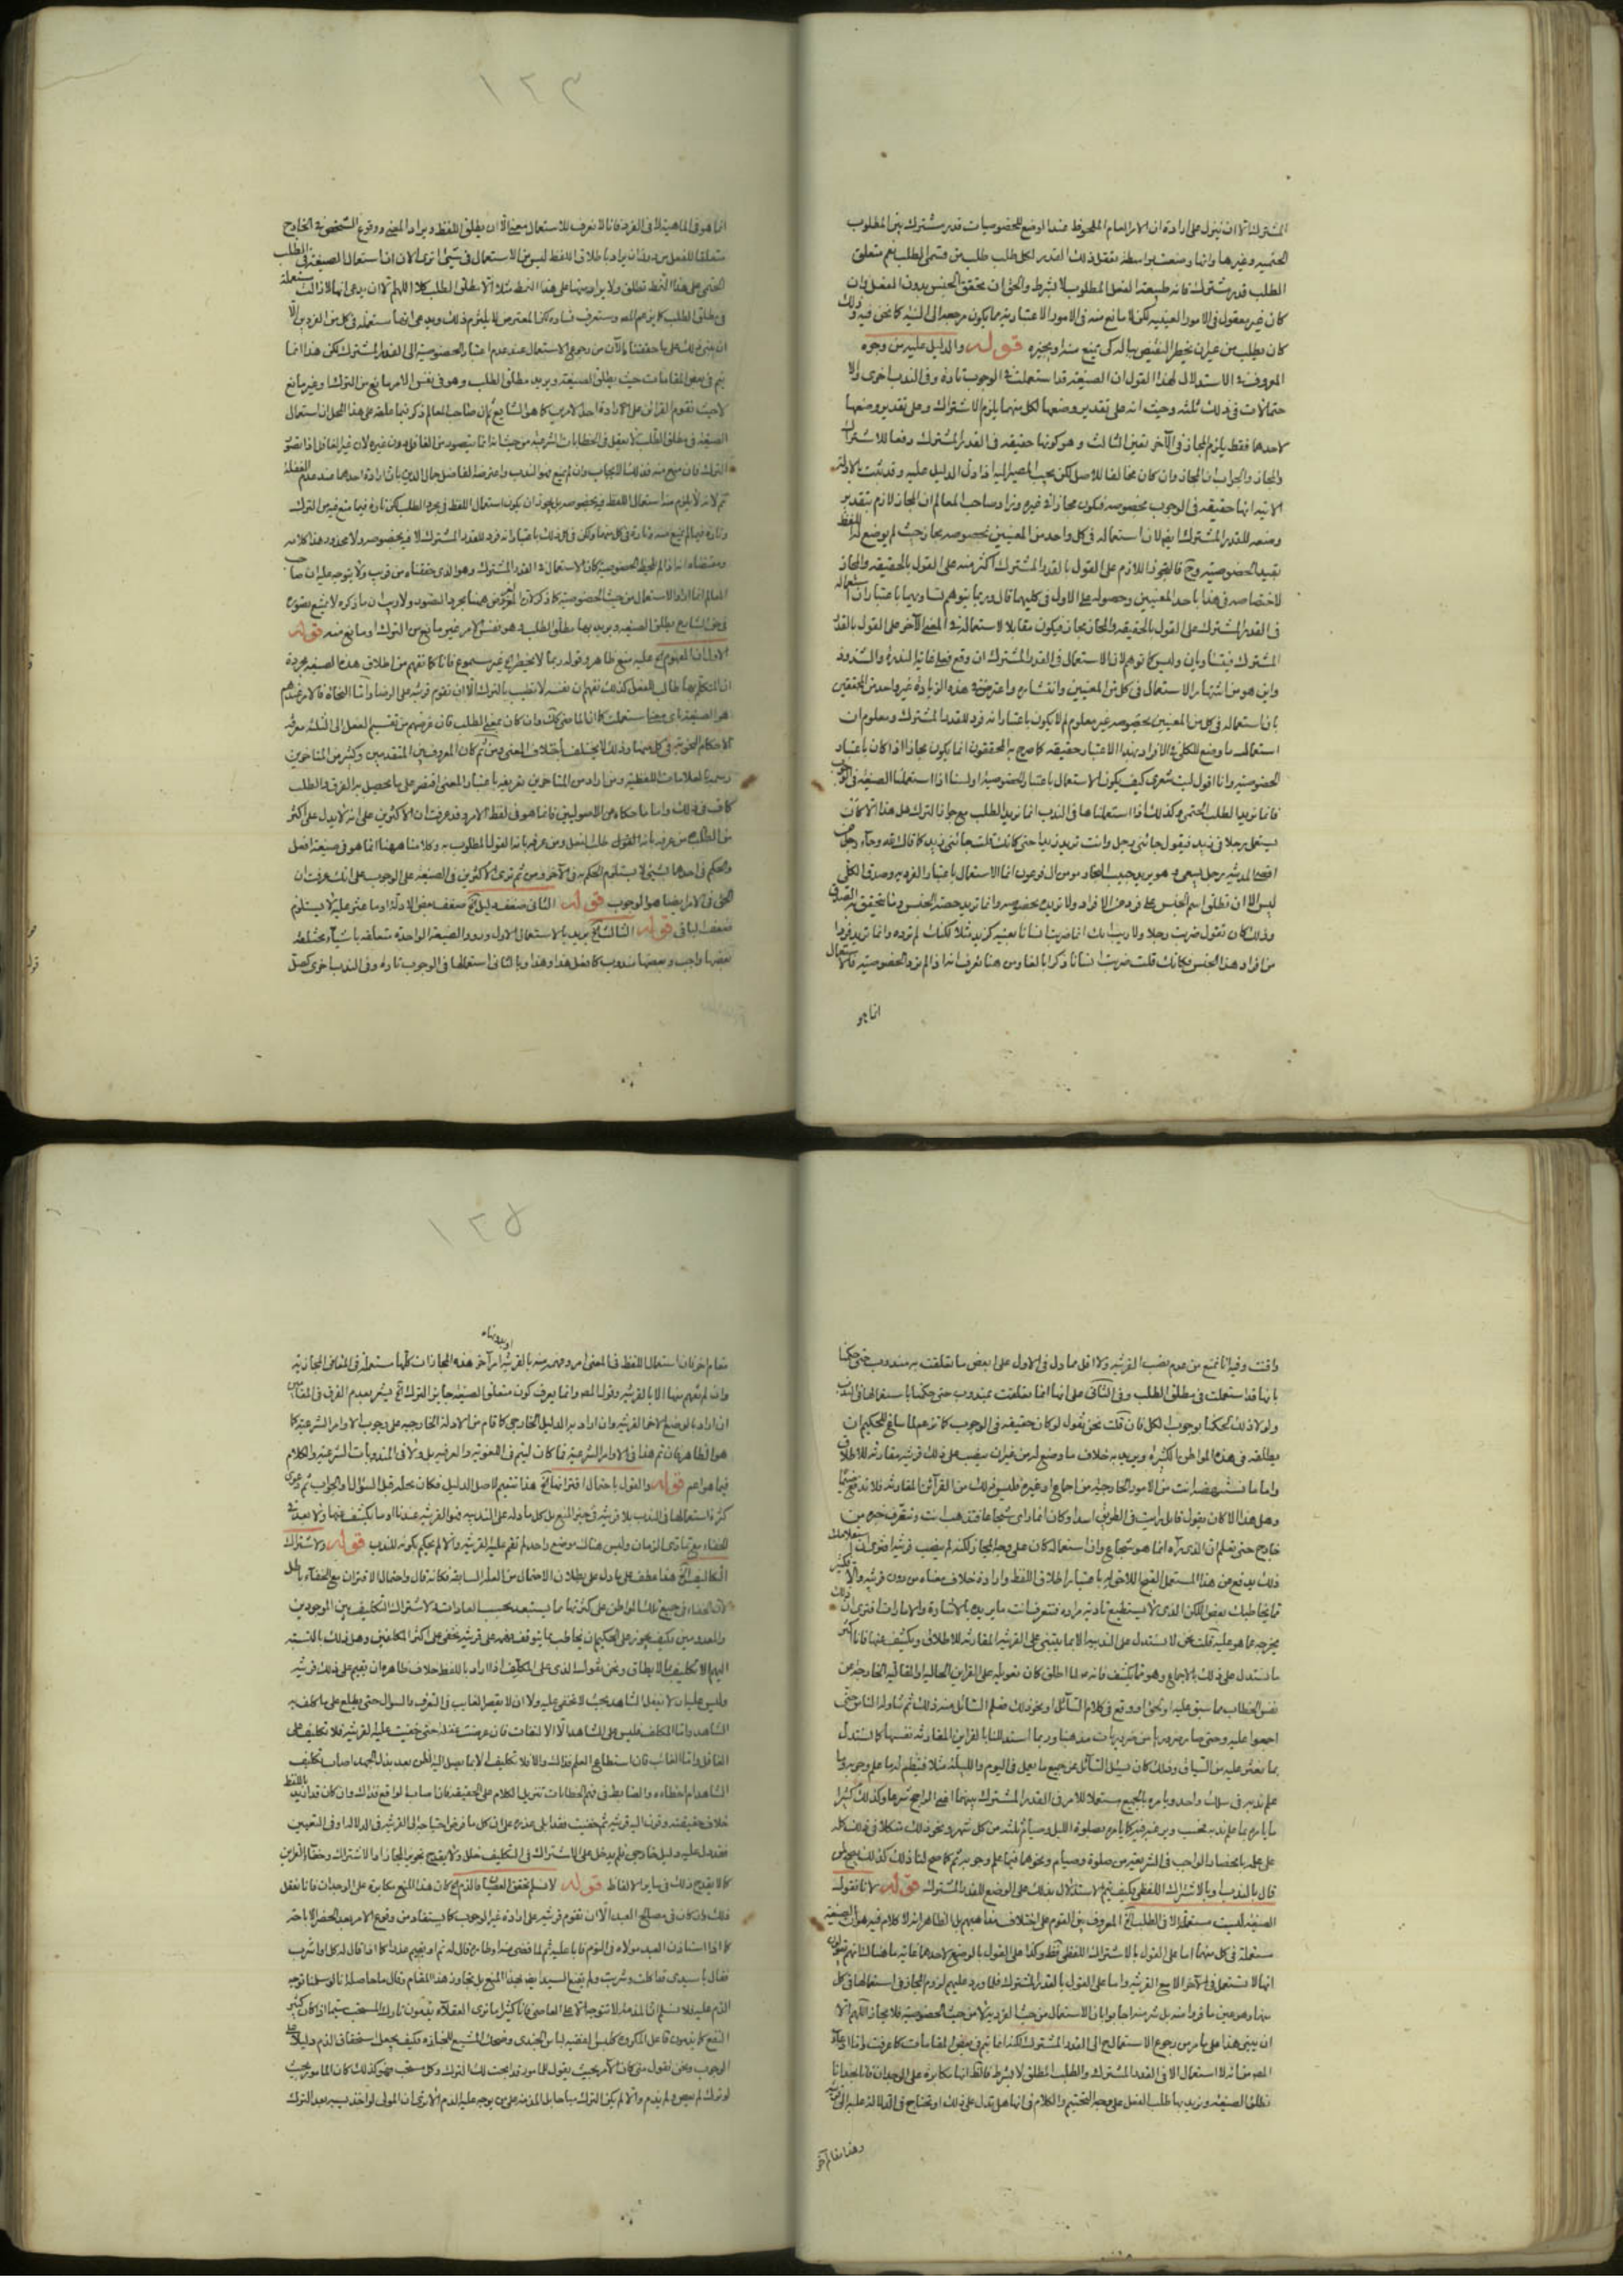 المشترك الا ان ينزل على ارادة ان الامر العام الملحوظ عند الوضع للخصوصيات قدر مشترك بين المطلوب
الحتمية وغيرها وانها وضعت بواسطة تعقل ذلك القدر لكل طلب طلب من قسمي الطلب نعم متعلق
الطلب قدر مشترك فانه طبيعة الفعل المطلوب لا بشرط والحق ان تحقق الجنس بدون الفصل وان
كان غير معقول في الامور العينية لكن لا مانع منه في الامور الاعتبارية مما يكون مرجعه الى النية كما نحن فيه وذلك
كان يطلب من غير ان يخطر النقيض بباله كي يمنع منه او يجيزه قوله والدليل عليه من وجوه
المعروف في الاستدلال لهذا القول ان الصيغة قد استعملت في الوجوب تارة وفي الندب اخرى ولا
حتمالات في ذلك ثلثة وحيث انه على تقدير وضعها لكل منهما يلزم الاشتراك وعلى تقدير وضعها
لاحدهما فقط يلزم المجاز في الآخر تعين الثالث وهو كونها حقيقة في القدر المشترك دفعا للاشتراك
والمجاز والجواب ان المجاز وان كان مخالفا للاصل لكن يجب المصير اليه اذا دل الدليل عليه وقد ثبت بالادلة
الاتية انها حقيقة في الوجوب بخصوصه فيكون مجازا في غيره وزاد صاحب المعالم ان المجاز لازم بتقدير
وضعه للقدر المشترك ايضا لان استعماله في كل واحد من المعنيين بخصوصه مجاز حيث لم يوضع له اللفظ
بقيد الخصوصية وح فالتجوز اللازم على القول بالقدر المشترك اكثر منه على القول بالحقيقة والمجاز
لاختصاصه في هذا باحد المعنيين وحصوله على الاول في كليهما قال وربما يتوهم تساويهما باعتبار ان استعماله
في القدر المشترك على القول بالحقيقة والمجاز مجاز فيكون مقابلا لاستعماله في المعنى الآخر على القول بالقدر
المشترك فيتساويان وليس كما توهم لان الاستعمال في القدر المشترك ان وقع فعلى غاية الندرة والشذوذ
واين هو من اشتهار الاستعمال في كل من المعنيين وانتشاره واعترض في هذه الزيادة غير واحد من المحققين
بان استعماله في كل من المعنيين بخصوصه غير معلوم لم لا يكون باعتبار انه فرد للقدر المشترك ومعلوم ان
استعمال ما وضع للكلي في الافراد بهذا الاعتبار حقيقة كما صرح به المحققون انما يكون مجازا اذا كان باعتبار
الخصوصية وانا اقول ليت شعري كيف يكون الاستعمال باعتبار الخصوصية اولسنا اذا استعملنا الصيغة في الوجوب
فانما نريد الطلب الحتمي وكذلك اذا استعملناها في الندب انما نريد الطلب مع جواز الترك هل هذا الا كأن
يستعمل رجلا في زيد فيقول جائني رجل وانت تريد زيدا حتى كانك قلت جائني زيد كما قال الله وجاء رجل من
اقصى المدينة رجل يسعى وهو يريد حبيب النجار مومن ال فرعون انما الاستعمال باعتبار الفردية وصدق الكلي
ليس الا ان تطلق اسم الجنس على فرد من الافراد ولا تريده بخصوصه وانما تريد حصة الجنس وما يتحقق به الصدق
وذلك كان تقول ضربت رجلا ولا ريب انك انما ضربت انسانا بعينه كزيد مثلا لكنك لم ترده وانما تريد فردا
من افراد هذا الجنس فكانك قلت ضربت انسانا ذكرا بالغا ومن هنا تعرف انه اذا لم ترد الخصوصية فالاستعمال
انما هو
١٢٣
انما هو في الماهية لا في الفرد فانا لا نعرف للاستعمال معنى الا ان يطلق اللفظ ويراد المعنى ووقوع الشخص في الخارج
متعلقا للفعل من دون ان يراد باطلاق اللفظ ليس من الاستعمال في شيء الا ترى الان ان استعمال الصيغة في الطلب
الحتمي على هذا النمط تطلق ولا يراد منها على هذا النمط مثلا الا مطلق الطلب كلا اللهم الا ان يدعى انها لا زالت مستعملة
في مطلق الطلب كما يزعم المصـ وستعرف فساده لكن المعترض لا يلتزم ذلك ويدعى انها مستعملة في كل من الفردين الا
ان يبنى ذلك على ما حققناه الآن من رجوع الاستعمال عند عدم اعتبار الخصوصية الى القدر المشترك لكن هذا انما
يتم في بعض المقامات حيث يطلق الصيغة ويريد مطلق الطلب وهو في نفس الامر مانع من الترك او غير مانع
لا حيث تقوم القرائن على ارادة احد الامرين كما هو الشايع
الصيغة في مطلق الطلب لا يعقل في الخطابات الشرعية من حيث انه انما يتصور من الغافل دون غيره لان غير الغافل اذا تصور
الترك فان منع منه فذلك الايجاب وان لم يمنع فهو الندب واعترضه الفاضل جمال الدين بان ارادة احدهما عند عدم الغفلة
ثم لانه لا يلزم منه استعمال اللفظ فيه بخصوصه بل يجوز ان يكون استعمال اللفظ في مجرد الطلب لكن تارة فيما منع فيه من الترك
وتارة فيما لم يمنع منه وارادة في كل منهما ولكن في كل ذلك باعتبار انه فرد للقدر المشترك لا فيه بخصوصه ولا محذور هذا كلامه
ومقتضاه انه اذا لم تلحظ الخصوصية كان الاستعمال في القدر المشترك وهو الذي حققناه من قريب ولا يتوجه عليه ان صاحب
المعالم انما اراد الاستعمال من حيث الخصوصية كما ذكر لان الغرض هيهنا مجرد التصور ولا ريب ان ما ذكره لا يمنع تصوره
في مطلق الصيغة ويريد بها مطلق الطلب وهو في نفس الامر غير مانع من الترك او مانع منه قوله
الاول ان المفهوم الخ عليه منع ظاهر وقوله ربما لا يخطر الخ غير مسموع فانا كما نفهم من اطلاق هذه الصيغة مجردة
ان المتكلم بها طالب للفعل كذلك نفهم ان نفسه لا تطيب بالترك الا ان تقوم قرينة على الرضا واما النحاة فالامر عندهم
هو الصيغة في اي معنى استعملت كما ان الماضي كك وان كان بمعنى الطلب فان غرضهم من تقسيم الفعل الى الثلثة معرفة
الاحكام النحوية في كل منهما وذلك لا يختلف باختلاف المعنى ومن ثم كان المعروف بين المتقدمين وكثير من المتاخرين
رسمه بالعلامات اللفظية ومن اراد من المتاخرين تعريفه باعتبار المعنى اقتصر على ما يحصل به الفرق والطلب
كاف في ذلك واما ما حكاه عن الاصوليين فانما هو في لفظ الامر وقد عرفت ان الاكثرين على انه لا يدل على اكثر
من الطلب من عرفه بانه القول طلب الفعل ومن عرفه بانه القول المطلوب به وكلامنا ههنا انما هو في صيغة افعل
والحكم في احدهما بشيء لا يستلزم الحكم به في الآخر ومن ثم ترى الاكثرين في الصيغة على الوجوب على انك عرفت ان
الحق في الامر ايضا هو الوجوب قوله الثاني ضعف دليل الخ ضعف بعض الادلة او ما عثر عليه لا يستلزم
ضعف الباقي قوله الثالث الخ يريد بالاستعمال الاول ورود الصيغة الواحدة متعلقة باشياء مختلفة
بعضها واجب وبعضها مندوب كافعل هذا وهذا وبالثاني استعمالها في الوجوب تارة وفي الندب اخرى كصل
وافت وفيه انا نمنع من عدم نصب القرينة ولا اقل مما دل في الاول على ان بعض ما تعلقت به مندوب حتى حكمنا
بانها قد استعملت في مطلق الطلب وفي الثاني على انها انما تعلقت بمندوب حتى حكمنا باستعمالها في الندب
ولولا ذلك لحكمنا بوجوب الكل فان قلت نحن نقول لو كان حقيقة في الوجوب كما تزعم لما ساغ للحكيم ان
يطلقه في هذه المواطن الكثيرة ويريد به خلاف ما وضع له من غير ان ينصب على ذلك قرينة مقارنة للاطلاق
واما ما تستنهضه انت من الامور الخارجية من اجماع وغيره فليس ذلك من القرائن المقارنة فلا تدفع
وهل هذا الا كان يقول قائل رايت في الطريق اسدا وكان انما راى شجاعا فتذهب انت وتتعرف خبره من
خارج حتى تعلم ان الذي رآه انما هو شجاع وان استعماله كان على وجه المجاز ولكنه لم ينصب قرينة افترى ان استعلامك
ذلك يدفع عن هذا المستعمل القبح اللاحق له باعتبار اطلاق اللفظ وارادة خلاف معناه من دون قرينة والا
ثم يخاطبك بعض اللكن الذي لا يستطيع تادية مراده فتتعرف انت ما يريده بالاشارة والامارات افترى ان ذلك
يخرجه عما هو عليه قلت نحن لا نستدل على الندبية الا بما يبتنى على القرينة المقارنة للاطلاق ويكشف عنها فانا اكثر
ما نستدل على ذلك بالاجماع وهو مما يكشف فانه لما اطلق كان تعويله على القرائن الحالية او المقالية الخارجة عن
نفس الخطاب ما سبق عليه او تحق او وقع في كلام السائل او نحو ذلك فعلم السائل منه ذلك ثم تناوله الناس حتى
اجمعوا عليه وحتى صار من ضروريات مذهبنا وربما استدللنا بالقرائن المقارنة نفسها كما نستدل
بما نعثر عليه من السياق وذلك كان يسئل السائل عن جميع ما يعمل في اليوم والليلة مثلا فينظم له ما علم وجوبه وما
علم ندبه في سلك واحد ويامره بالجميع مستعملا للامر في القدر المشترك بينهما
ما يامر بما علم ندبه فحسب من غير نكير كما يامر بصلوة الليل وصيام ثلثه من كل شهر ونحو ذلك
على علمه بانحصار الواجب في الشريعة من صلوة وصيام ونحوها فيما علم وجوبه ثم كما صح لنا ذلك كذلك يصح لمن
قال بالندب او بالاشتراك اللفظي فكيف يتم الاستدلال بذلك على الوضع للقدر المشترك قوله لانا نقول
الصيغة ليست مستعملة الا في الطلب الخ المعروف بين القوم على اختلاف مذاهبهم بل الظاهر انه لا كلام فيه هو ان الصيغة
مستعملة في كل منهما اما على القول بالاشتراك اللفظي فظ وكذا على القول بالوضع لاحدهما غاية ما هنا انهم يقولون
انها لا تستعمل في الآخر الا مع القرينة واما على القول بالقدر المشترك فلما ورد عليهم لزوم المجاز في استعمالها في كل
منهما وهو عين ما فروا منه بل شر منه اجابوا بان الاستعمال من حيث الفردية لا من حيث الخصوصية فلا مجاز اللهم الا
ان يبنى هذا على ما مر من رجوع الاستعمال ح الى القدر المشترك لكنه انما يتم في بعض المقامات كما عرفت واما ادعاء
المصـ من انه لا استعمال الا في القدر المشترك والطلب المطلق لا بشرط فالظ انها مكابرة على الوجدان فانا نجد انا
نطلق الصيغة ونريد بها طلب الفعل على وجه التحتيم والكلام في انها هل تدل على ذلك او تحتاج في الدلالة عليه الى قرينة
وهذا مقام آخر
١٢٥
او يدونهاء
مقام اخر فان استعمال اللفظ في المعنى امر وفهمه منه بالقرينة امر آخر هذه المجازات كلها مستعملة في المعاني المجازية
وان لم تفهم منها الا بالقرينة وقول المصـ وانما يعرف كون متعلق الصيغة جايز الترك الخ يشير بعدم الفرق في المقامين
ان اراد بالوضع الاخر القرينة وان اراد به الدليل الخارجي كما قام من الادلة الخارجية على وجوب الاوامر الشرعية كما
هو الظاهر فان تم هذا في الاوامر الشرعية فما كان ليتم في اللغوية والعرفية بل ولا في المندوبات الشرعية والكلام
فيما هو اعم قوله والقول باحتمال اقترانها الخ هذا تتميم لاصل الدليل فكان محله قبل السؤال والجواب ثم دعوى
كثرة استعمالها في الندب بلا قرينة في حيز المنع بل كل ما دل على الندبية فهو القرينة عندنا او ما يكشف عنها ولا يبعد في
الخفاء مع تمادي الزمان وليس هناك موضع واحد لم تقم عليه القرينة والا لم يحكم بكونه للندب قوله ولاشتراك
التكاليف الخ هذا عطف على ما دل على بطلان الاحتمال من العلة السابقة فكانه قال واحتمال الاقتران مع الخفاء باطل
لان الخفاء في جميع تلك المواطن على كثرتها مما يستبعد بحسب العادات ولاشتراك التكليف بين الموجودين
والمعدومين فكيف يجوز على الحكيم ان يخاطب بما يتوقف فهمه على قرينة تخفى على اكثر المكلفين وهل ذلك بالنسبة
اليهم الا تكليف بما لا يطاق ونحن نقول الذي على المكلف اذا اراد باللفظ خلاف ظاهره ان يقيم على ذلك قرينة
وليس عليه ان لا يغفل الشاهد بحيث لا تخفى عليه ولا ان لا يقصر الغايب في التعرف والسؤال حتى يطلع على ما كلف به
الشاهد واما المكلف فليس على الشاهد الا الالتفات فان عرضت غفلة حتى خفيت عليه القرينة فلا تكليف على
الغافل واما الغائب فان استطاع العلم فذاك والا فلا تكليف الا بما يصل اليه الظن بعد بذل الجهد اصاب تكليف
الشاهد ام اخطاءه والضابط في فهم الخطابات تنزيل الكلام على الحقيقة فان اصاب الواقع فذاك وان كان قد اريد باللفظ
خلاف حقيقته وقرن اليه قرينة ثم خفيت فقد ابلى عذره على ان كل ما فرض احتياجه الى القرينة في الدلالة او في التعيين
فقد دل عليه دليل خارجي فلم يدخل على الاشتراك في التكليف خلل ولا يقدح تجويز المجاز او الاشتراك وخفاء القرائن
كما لا يقدح ذلك في ساير الالفاظ قوله لا نسلم تحقق العصيان والذم الخ كان هذا المنع مكابرة على الوجدان فانا نعقل
ذلك وان كان في مصالح العبد الا ان تقوم قرينة على ارادة غير الوجوب كما يستفاد من وقوع الامر بعد الحظر الاباحة
كما اذا استاذن العبد مولاه في النوم فابا عليه ثم لما قضى منه اوطاره قال له نم او بغير هذا كما اذا قال له كل او اشرب
فقال يا سيدي قد اكلت وشربت ولم يقنع السيد ايضا بهذا المنع بل تجاوز هذا المقام وقال ما حاصله انا لو سلمنا توجه
الذم عليه فلا نسلم ان المذمة لا تتوجه الا على العاصي فانا كثيرا ما نرى العقلاء يذمون تارك المستحب سيما اذا كان كثير
النفع كما يذمون فاعل المكروه كلبس الفقيه لباس الجندي وضحك المشيع للجنازة فكيف يجعل استحقاق الذم دليلا على
الوجوب ونحن نقول متى كان الآمر بحيث يقول للمامور قد ابحت لك الترك وكل مستحب فهو كذلك كان المامور بحيث
لو ترك لم يعص ولم يذم والا لم يكن الترك مباحا بل المذمة على من يوجه عليه الذم الا ترى ان المولى لو اخذ يسبه بعد الترك